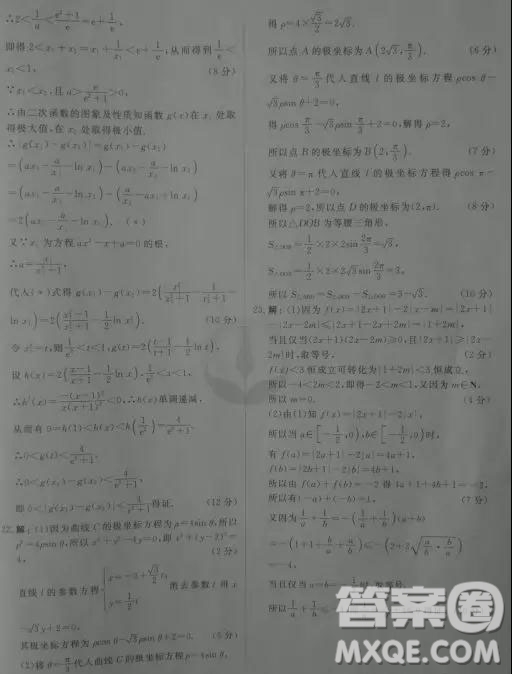 ∴2<1/a<(e²+1)/e=e+1/e,
即得 2<x₁+x₂=x₁+1/x₁<e+1/e,从而得到 1/e<
x₁<1, (8分)
∵x₁<x₂,且a>e/(e²+1)>0,
∴由二次函数的图象及性质知函数 g(x)在 x₁ 处取
得极大值,在 x₂ 处取得极小值.
∴|g(x₁)-g(x₂)|=g(x₁)-g(x₂)
=(ax₁-a/x₁-ln x₁)-(ax₂-a/x₂-ln x₂)
=(ax₁-a/x₁-ln x₁)-(a/x₁-ax₁+ln x₁)
=2(ax₁-a/x₁-ln x₁). (*)
又∵x₁ 为方程 ax²-x+a=0 的根,
∴a=x₁/(x₁²+1),
代入(*)式得 g(x₁)-g(x₂)=2(x₁²/(x₁²+1)-1/(x₁²+1)-
ln x₁)=2((x₁²-1)/(x₁²+1)-1/2 ln x₁²). (10分)
令 x₁²=t,则 1/e²<t<1,g(t)=2((t-1)/(t+1)-1/2 ln t).
设 h(x)=2((x-1)/(x+1)-1/2 ln x),1/e²<x<1,
∴h′(x)=-(x-1)²/(x(x+1)²)<0,∴h(x)单调递减,
从而有 0=h(1)<h(x)<h(1/e²)=4/(e²+1).
∴0<g(t)<4/(e²+1).
∴0<g(x₁)-g(x₂)<4/(e²+1),
即 0<|g(x₁)-g(x₂)|<4/(e²+1)得证. (12分)
22.解:(1)因为曲线 C 的极坐标方程为 ρ=4sin θ,所以
ρ²=4ρsin θ,所以 x²+y²-4y=0,即 x²+(y-2)²=
4, (2分)
直线 l 的参数方程 消去参数 t 得 x
-√3y+2=0,
其极坐标方程为 ρcos θ-√3ρsin θ+2=0. (5分)
(2)将 θ=π/3 代入曲线 C 的极坐标方程 ρ=4sin θ,
得 ρ=4×√3/2=2√3.
所以点 A 的极坐标为 A(2√3,π/3). (6分)
又将 θ=π/3 代入直线 l 的极坐标方程 ρcos θ-
√3ρsin θ+2=0,
得 ρcos π/3-√3ρsin π/3+2=0,解得 ρ=2,
所以点 B 的极坐标为 B(2,π/3). (7分)
又将 θ=π 代入直线 l 的极坐标方程得 ρcos π-
√3ρsin π+2=0,
解得 ρ=2,所以点 D 的极坐标为(2,π). (8分)
所以△DOB 为等腰三角形,
S△DOB=1/2×2×2sin 2π/3=√3,
S△DOA=1/2×2×2√3sin 2π/3=3,
所以 S△ABD=S△DOA-S△DOB=3-√3. (10分)
23.解:(1)因为 f(x)=|2x+1|-2|x-m|=|2x+1|
-|2x-2m|≤|2x+1-2x+2m|=|1+2m|,
当且仅当(2x+1)(2x-2m)≥0,且|2x+1|≥|2x-
2m|时,取等号, (2分)
f(x)<3 恒成立可转化为|1+2m|<3 恒成立,
所以-4<2m<2,即得-2<m<1,又因为 m∈N,
所以 m=0. (4分)
(2)由(1)知 f(x)=|2x+1|-2|x|,
所以当 a∈[-1/2,0),b∈[-1/2,0)时,
有 f(a)=|2a+1|-2|a|=4a+1,
f(b)=|2b+1|-2|b|=4b+1,
所以由 f(a)+f(b)=-2 得 4a+1+4b+1=-2,
所以有(-a)+(-b)=1, (7分)
又因为 1/a+1/b=-(1/a+1/b)(a+b)
=-(1+1+b/a+a/b)≤-(2+2√(a/b·b/a))
=-4,
当且仅当 a=b=-1/2时,取等号.
所以 1/a+1/b≤
答案圈
MXQE.COM